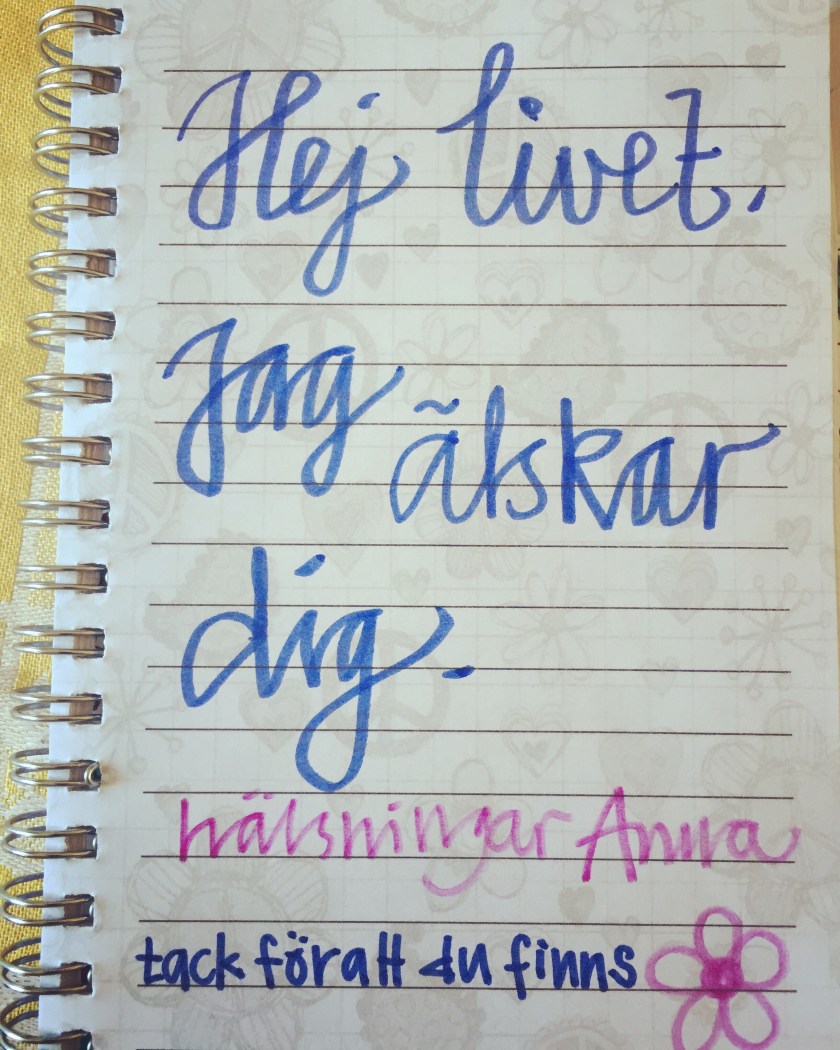 Hej livet.
Jag älskar
dig.
hälsningar Anna
tack föratt du finns